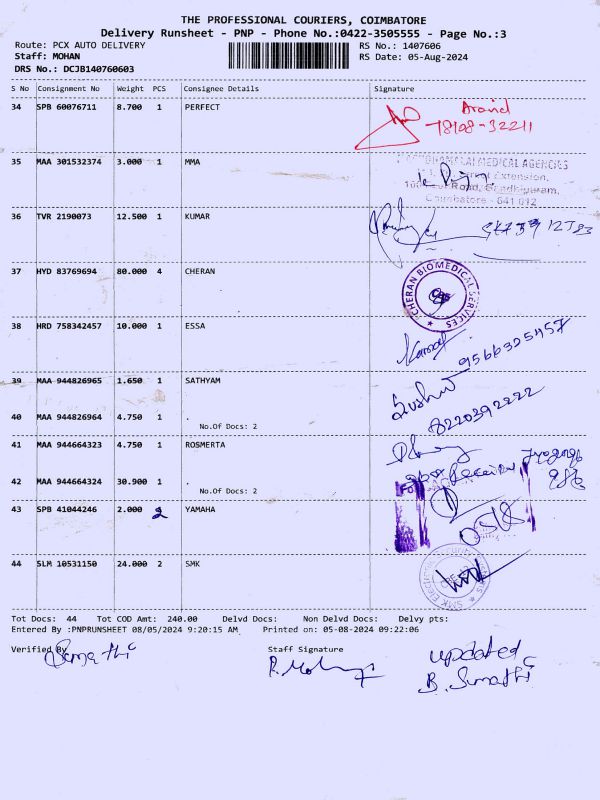 THE PROFESSIONAL COURIERS, COIMBATORE
Delivery Runsheet - PNP - Phone No.:0422-3505555 - Page No.:3
Route: PCX AUTO DELIVERY RS No.: 1407606
Staff: MOHAN RS Date: 05-Aug-2024
DRS No.: DCJB140760603
S No Consignment No Weight PCS Consignee Details Signature
34 SPB 60076711 8.700 1 PERFECT
78108-32211
35 MAA 301532374 3.000 1 MMA
MEDICAL AGENCIES
Extension,
Road, Gandhipuram,
Coimbatore - 641 012
36 TVR 2190073 12.500 1 KUMAR
37 HYD 83769694 80.000 4 CHERAN
CHERAN BIOMEDICAL SERVICES
38 HRD 758342457 10.000 1 ESSA
9566325457
39 MAA 944826965 1.650 1 SATHYAM
40 MAA 944826964 4.750 1 .
No.Of Docs: 2
8220392222
41 MAA 944664323 4.750 1 ROSMERTA
42 MAA 944664324 30.900 1 .
No.Of Docs: 2
43 SPB 41044246 2.000 2 YAMAHA
44 SLM 10531150 24.000 2 SMK
Tot Docs: 44 Tot COD Amt: 240.00 Delvd Docs: Non Delvd Docs: Delvy pts:
Entered By :PNPRUNSHEET 08/05/2024 9:20:15 AM Printed on: 05-08-2024 09:22:06
Verified By Staff Signature updated
B. Sumathi